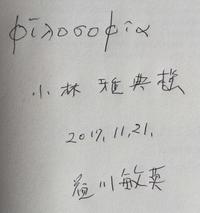 φιλοσοφία
小林 雅典 様
2017.11.21.
益川敏英